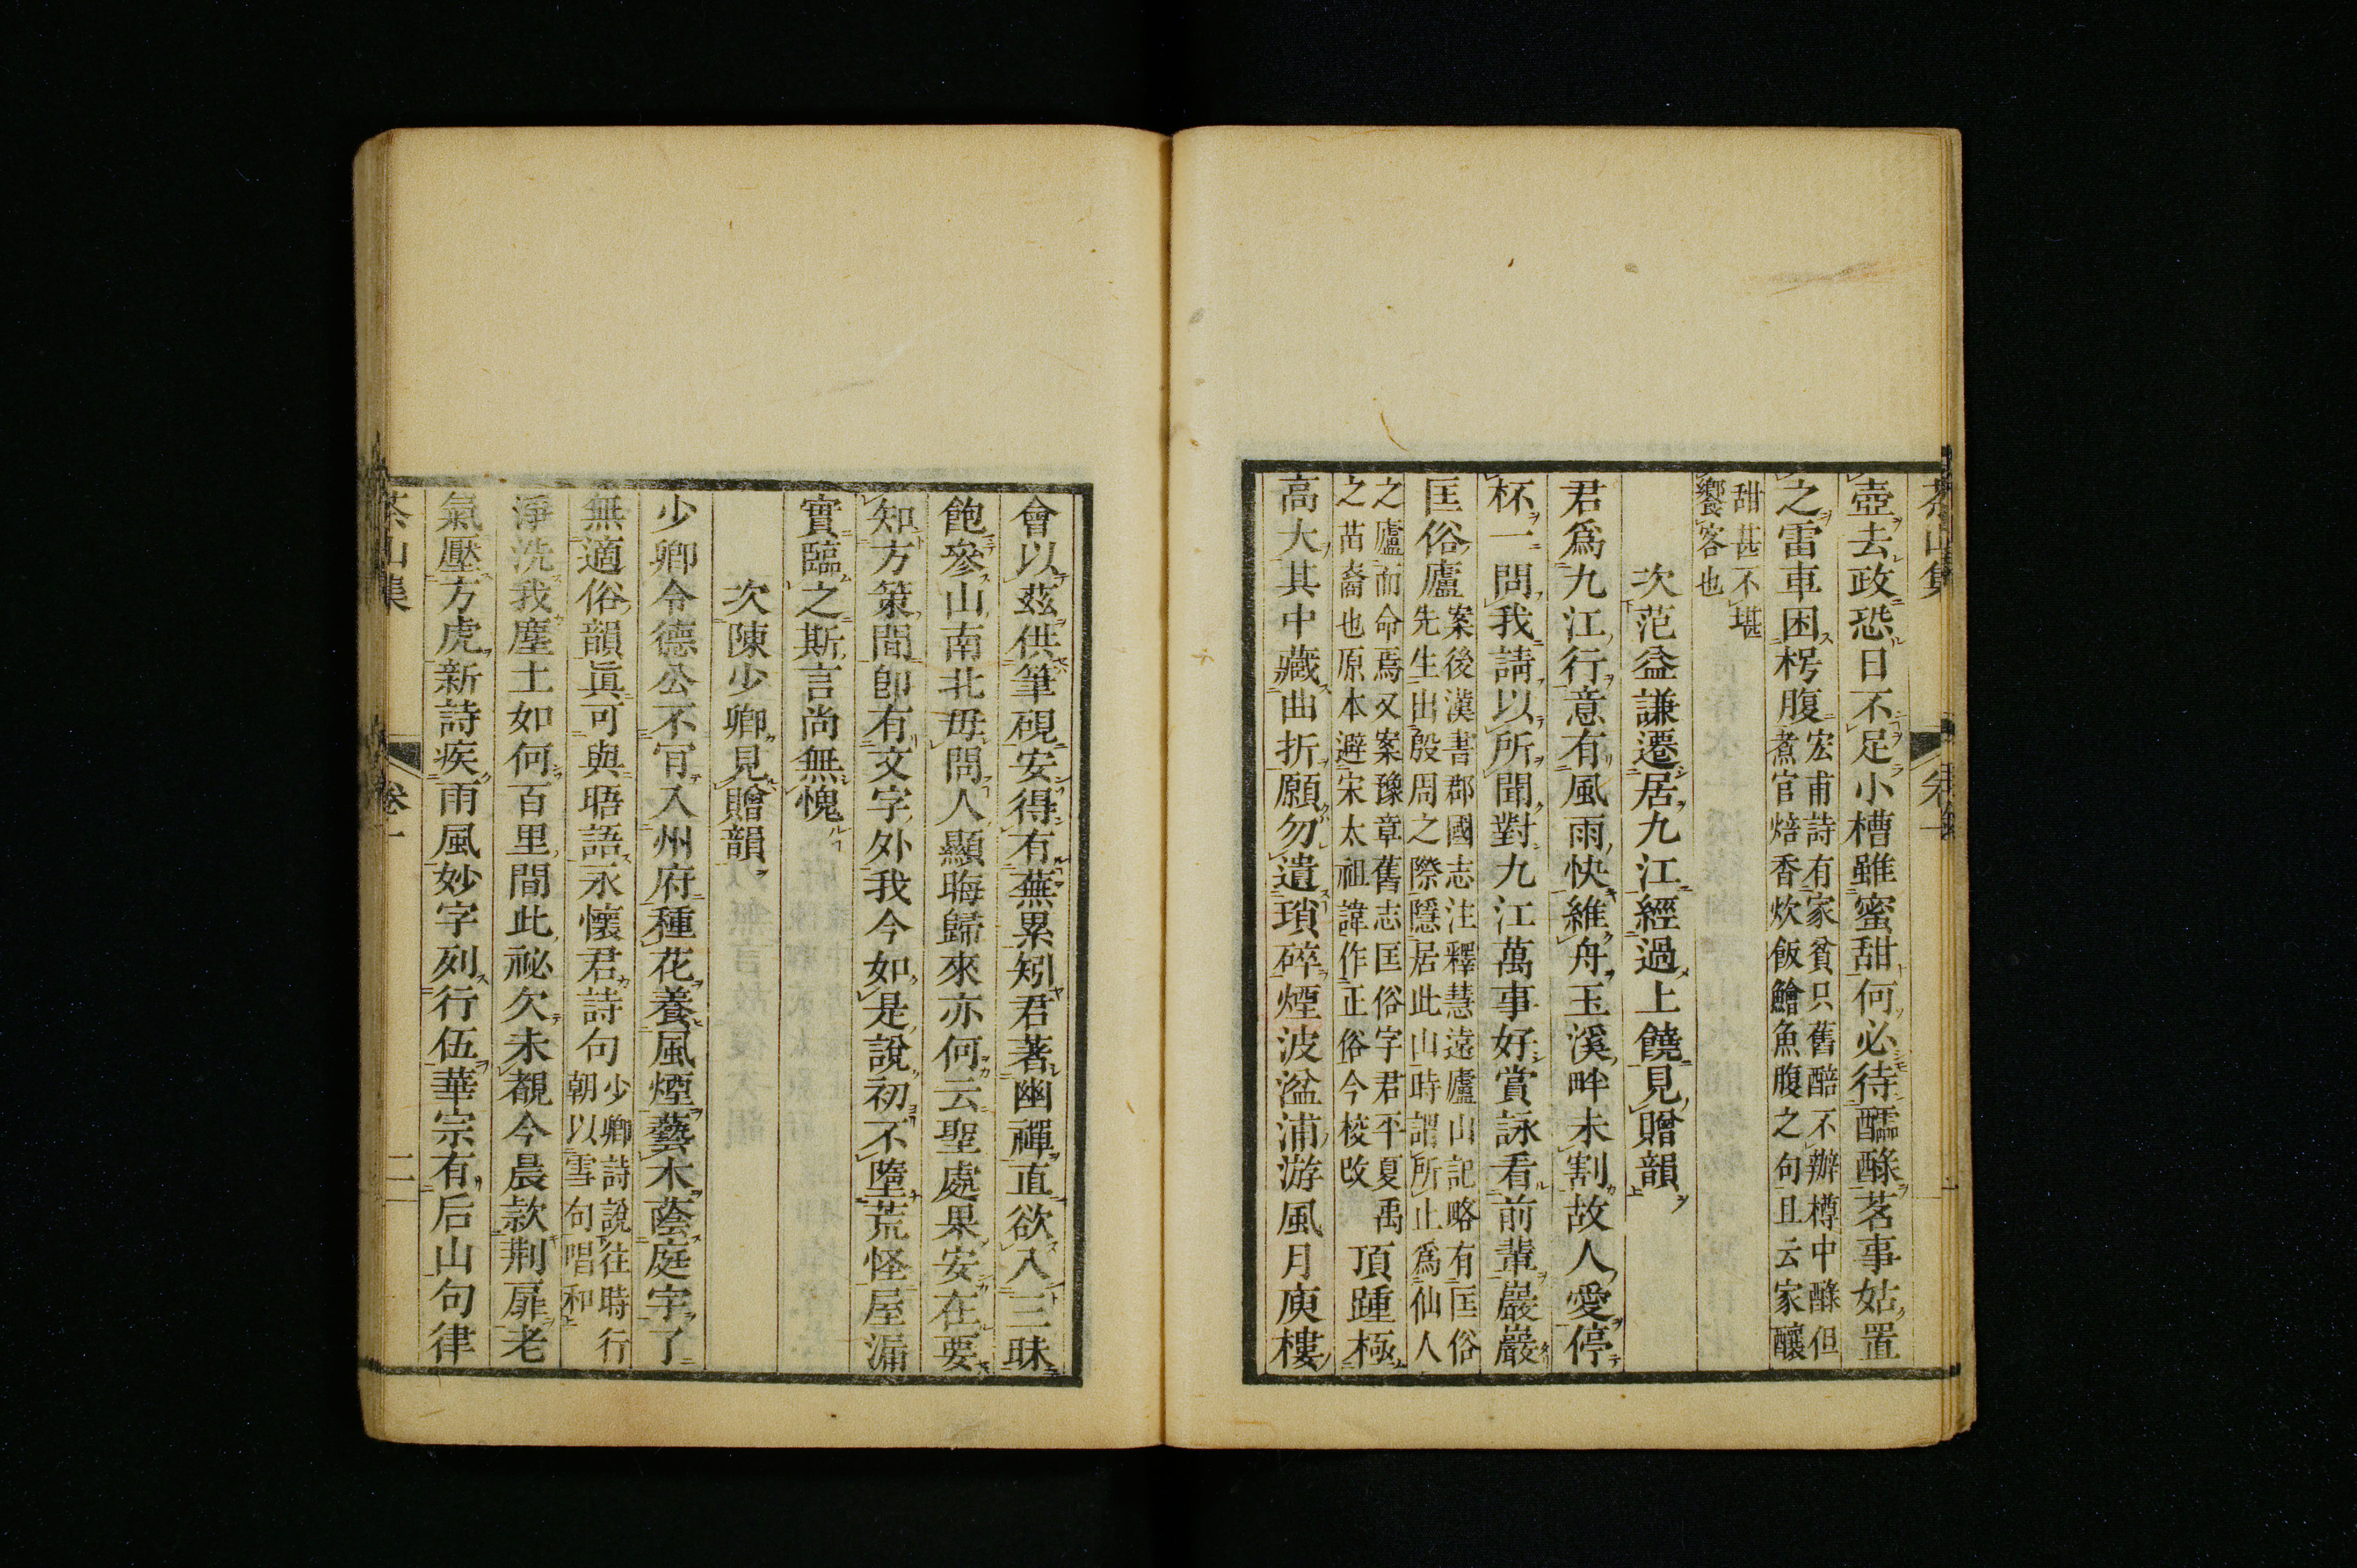 壺去政恐日不足小槽雖蜜甜何必待醽醁茗事姑置
之雷車困枵腹宏甫詩有家貧只舊醅不辦樽中醁但
煮官焙香炊飯鱠魚腹之句且云家釀
甜甚不堪
饗客也
次范益謙遷居九江經過上饒見贈韻
君爲九江行意有風雨快維舟玉溪畔未割故人愛停
杯一問我請以所聞對九江萬事好賞詠看前輩巖巖
匡俗廬案後漢書郡國志注釋慧遠廬山記略有匡俗
先生出殷周之際隱居此山時謂所止爲仙人
之廬而命焉又案豫章舊志匡俗字君平夏禹
之苗裔也原本避宋太祖諱作正俗今校改頂踵極
高大其中藏曲折願勿遺瑣碎煙波湓浦游風月庾樓
會以茲供筆硯安得有蕪累矧君著幽禪直欲入三昧
飽參山南北毋問人顯晦歸來亦何云聖處果安在要
知方策間卽有文字外我今如是說初不墮荒怪屋漏
實臨之斯言尚無愧
次陳少卿見贈韻
少卿令德公不肎入州府種花養風煙藝木蔭庭宇了
無適俗韻眞可與晤語永懷君詩句少卿詩說往時行
朝以雪句唱和
淨洗我塵土如何百里間此祕欠未覩今晨款荆扉老
氣壓方虎新詩疾雨風妙字列行伍華宗有后山句律
茶山集　卷一　二